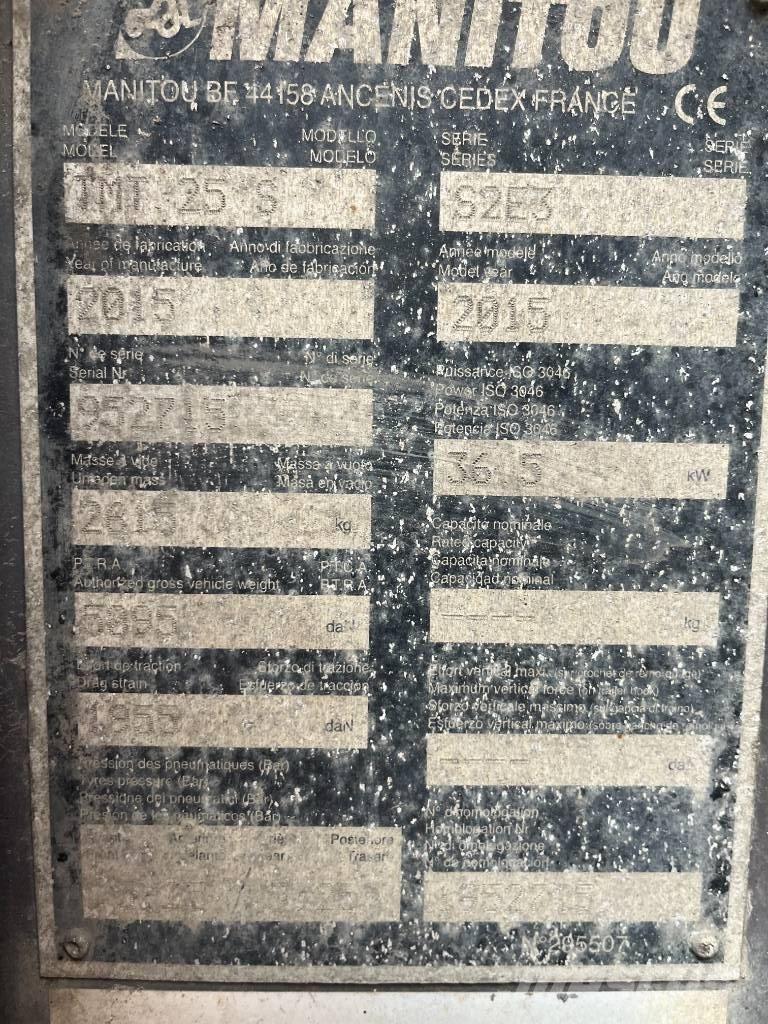 MANITOU
MANITOU BF 44158 ANCENIS CEDEX FRANCE CE
MODÈLE MODELLO
MODEL MODELO
TMT 25 S
SÉRIE SERIE
SERIES SERIE
S2E3
Année de fabrication Anno di fabbricazione
Year of manufacture Año de fabricación
2015
Année modèle Anno modello
Model year Año modelo
2015
N° de série N° di serie
Serial Nr N° de serie
952715
Puissance ISO 3046
Power ISO 3046
Potenza ISO 3046
Potencia ISO 3046
36 5 kW
Masse à vide Massa a vuoto
Unladen mass Masa en vacío
2615 kg
Capacité nominale
Rated capacity
Capacita nominale
Capacidad nominal
---- kg
P.T.R.A P.T.C.A
Authorized gross vehicle weight P.T.R.A
daN
Effort de traction Sforzo di trazione
Drag strain Esfuerzo de tracción
daN
Effort vertical maxi. (sur crochet de remorquage)
Maximum vertical force (on trailer hook)
Sforzo verticale massimo (sul gancio di traino)
Esfuerzo vertical máximo (sobre gancho de
----
Pression des pneumatiques (Bar)
Tyres pressure (Bar)
Pressione dei pneumatici (Bar)
Presión de los neumáticos (Bar)
Posteriore
Trasero
N° d'homologation
Homologation Nr
N° di omologazione
N° de homologación
N°295507